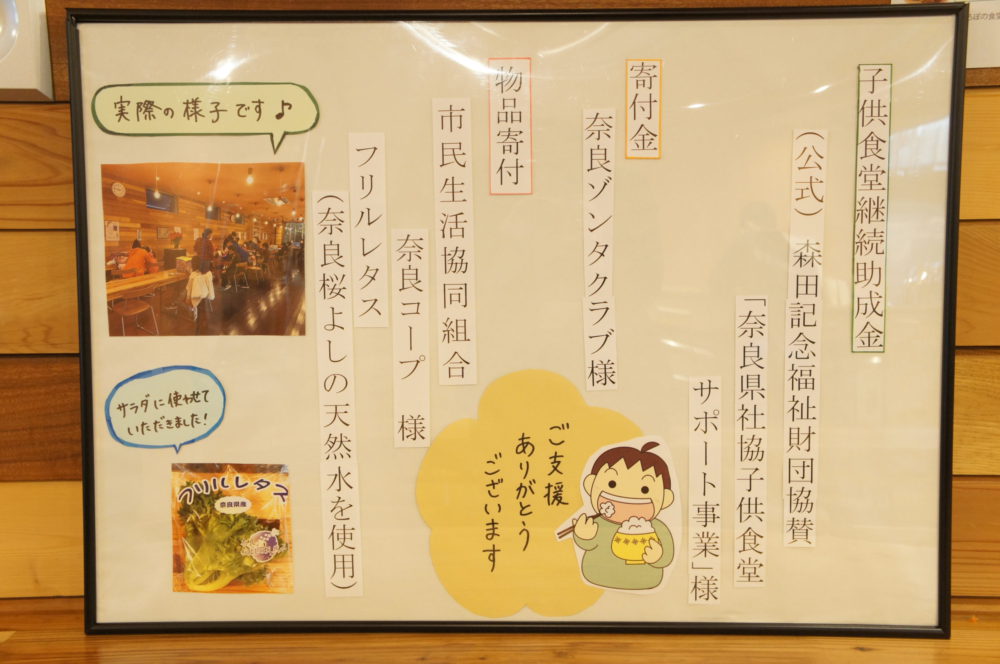 子供食堂継続助成金
(公式) 森田記念福祉財団協賛
「奈良県社協子供食堂
サポート事業」様
寄付金
奈良ゾンタクラブ様
物品寄付
市民生活協同組合
奈良コープ 様
フリルレタス
(奈良桜よしの天然水を使用)
ご支援
ありがとう
ございます
実際の様子です♪
サラダに使わせて
いただきました!
フリルレタス
奈良県産